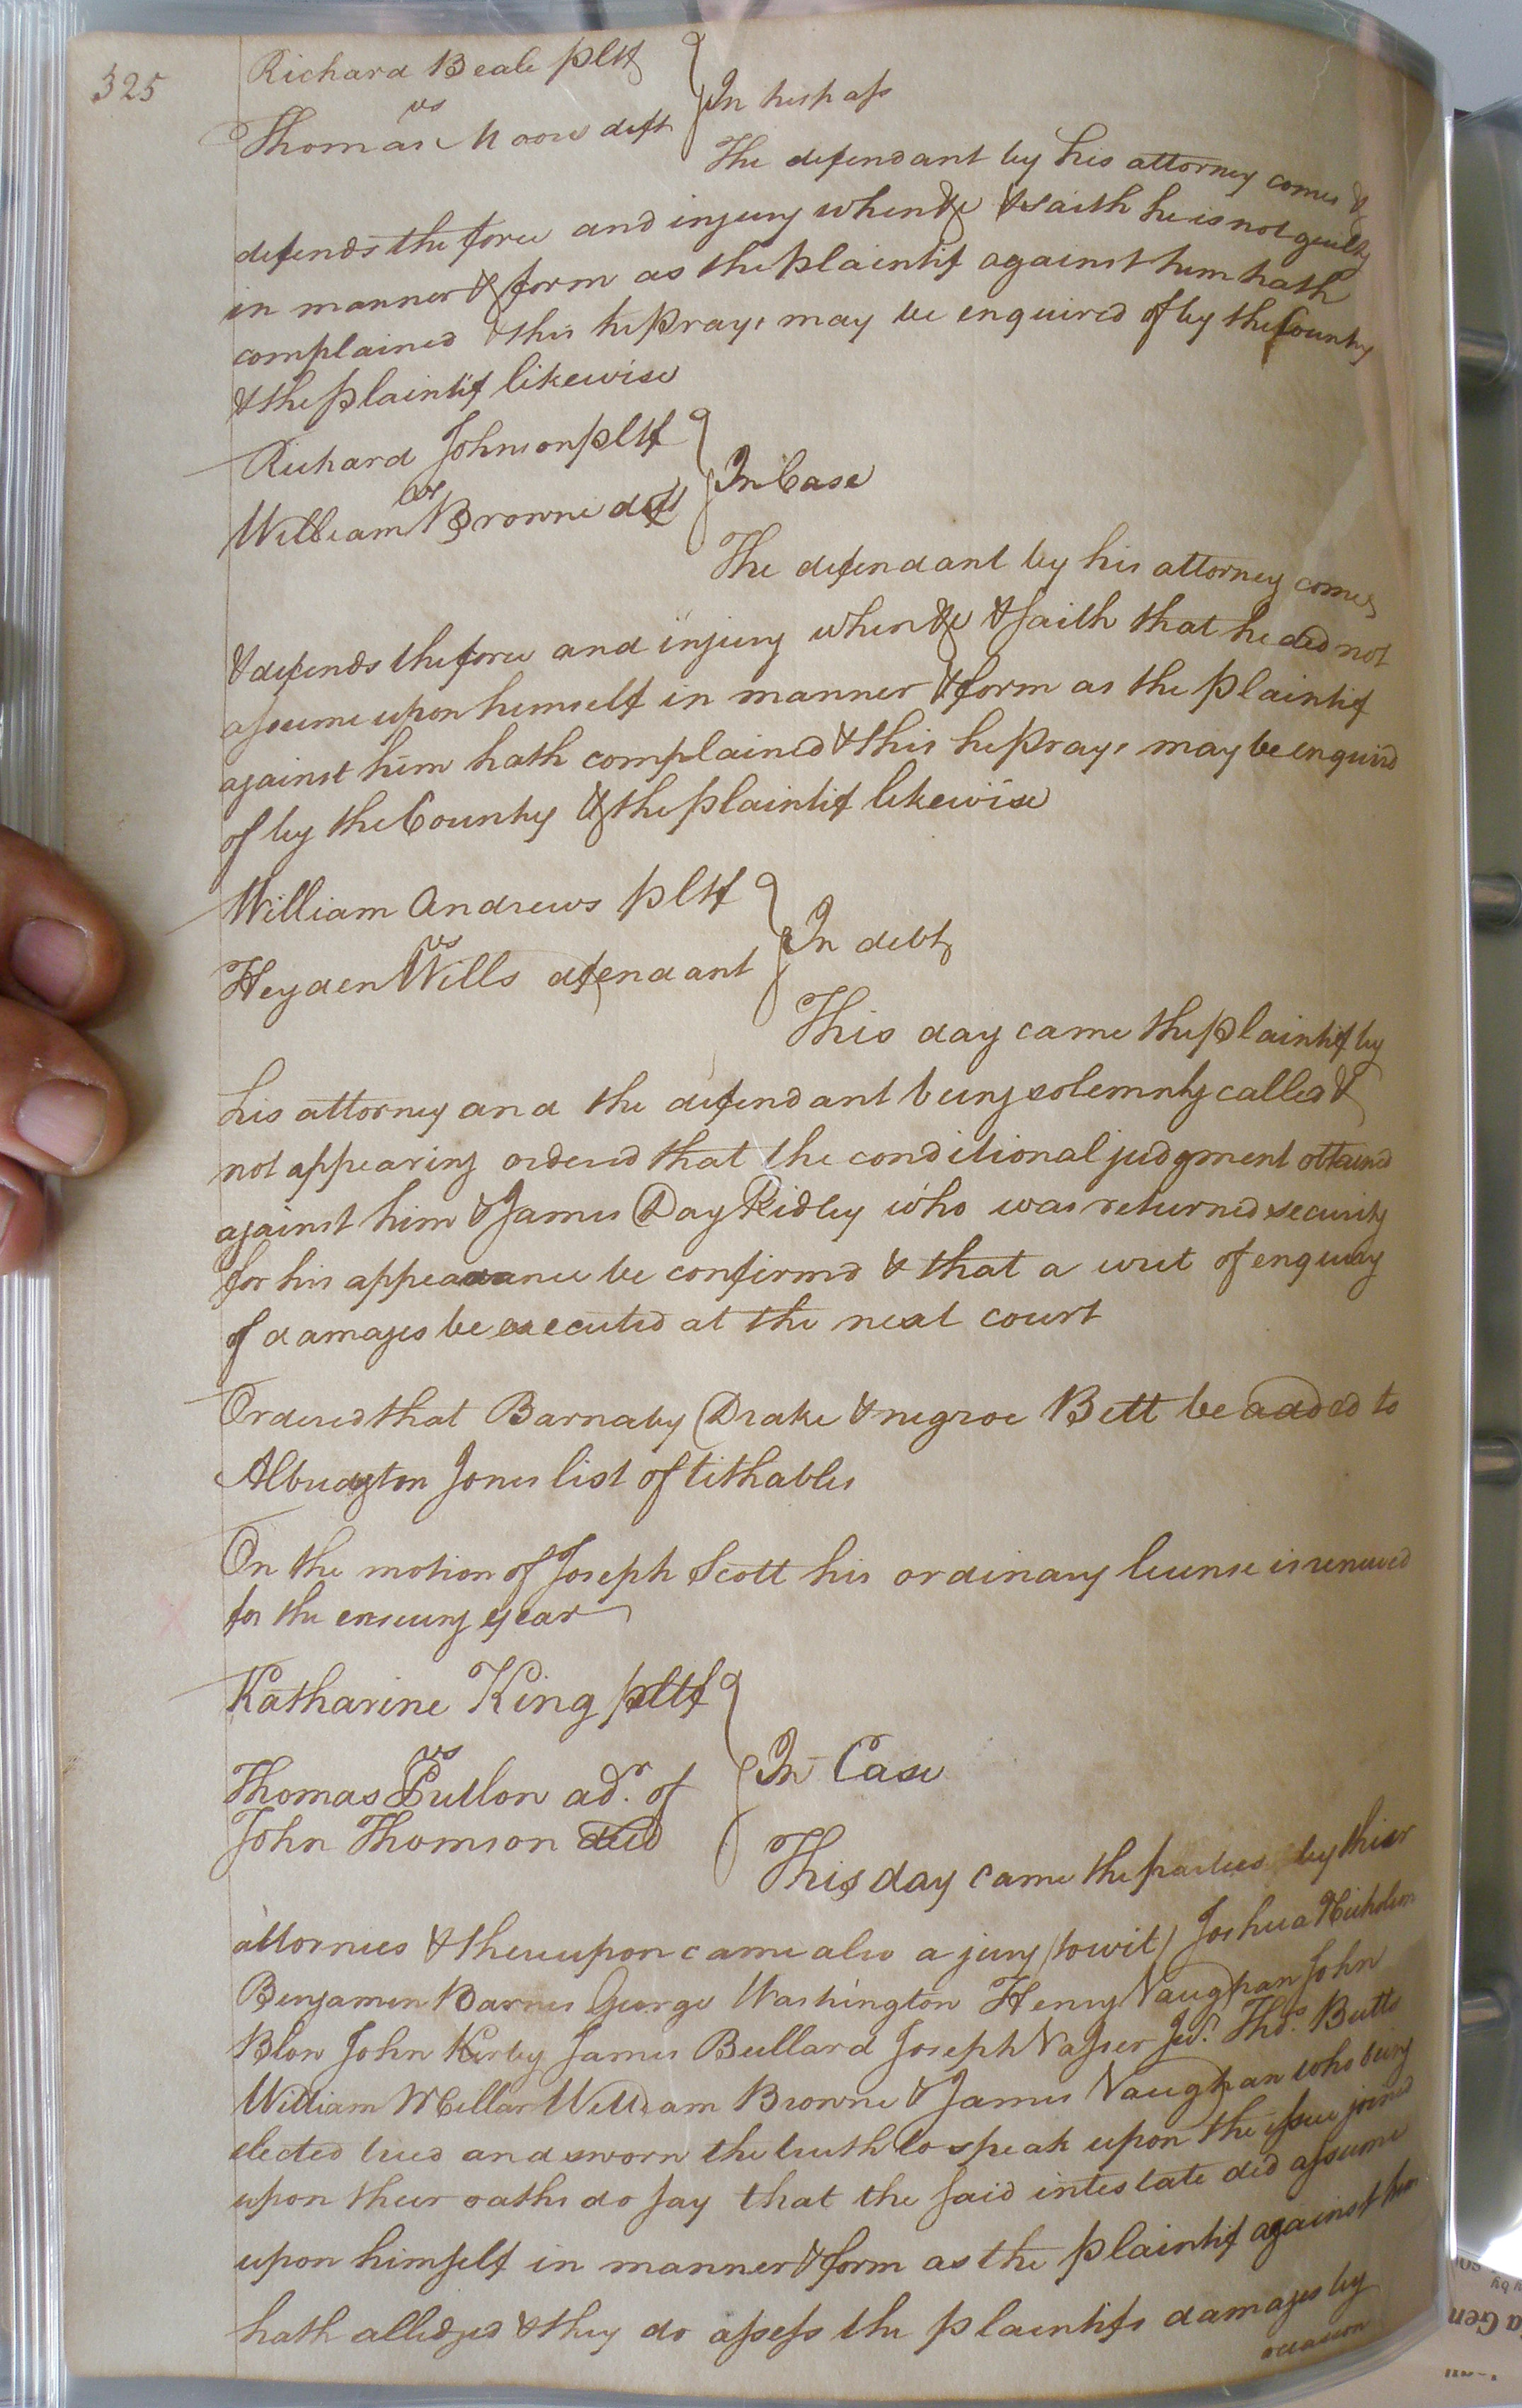 325
Richard Beale pltf
vs
Thomas Moore deft
In tresp ass
The defendant by his attorney comes &
defends the force and injury when &c & saith he is not guilty
in manner & form as the plaintif against him hath
complained & this he prays may be enquired of by the Country
& the plaintif likewise
Richard Johnson pltf
vs
William Browne deft
In Case
The defendant by his attorney comes
& defends the force and injury when &c & saith that he did not
assume upon himself in manner & form as the plaintif
against him hath complained & this he prays may be enquird
of by the Country & the plaintif likewise
William Andrews pltf
vs
Heyden Wills defendant
In debt
This day came the plaintif by
his attorney and the defendant being solemnly called &
not appearing ordered that the conditional judgment obtained
against him & James Day Ridley who was returned security
for his appearance be confirmd & that a writ of enquiry
of damages be executed at the next court
Ordered that Barnaby Drake & negroe Bett be added to
Albridgton Jones list of tithables
On the motion of Joseph Scott his ordinary license is renewed
for the ensuing year
Katharine King pltf
vs
Thomas Pullon adr. of
John Thomson decd
In Case
This day came the parties by thier
attornies & thereupon came also a jury (towit) Joshua Nicholson
Benjamin Barnes George Washington Henry Vaughan John
Blow John Kirby James Bullard Joseph Vasser Jur. Thos. Butts
William Millar William Browne & James Vaughan who being
elected tried and sworn the truth to speak upon the issue joined
upon their oaths do say that the said intestate did assume
upon himself in manner & form as the plaintif against him
hath alledged & they do assess the plaintifs damages by
occasion